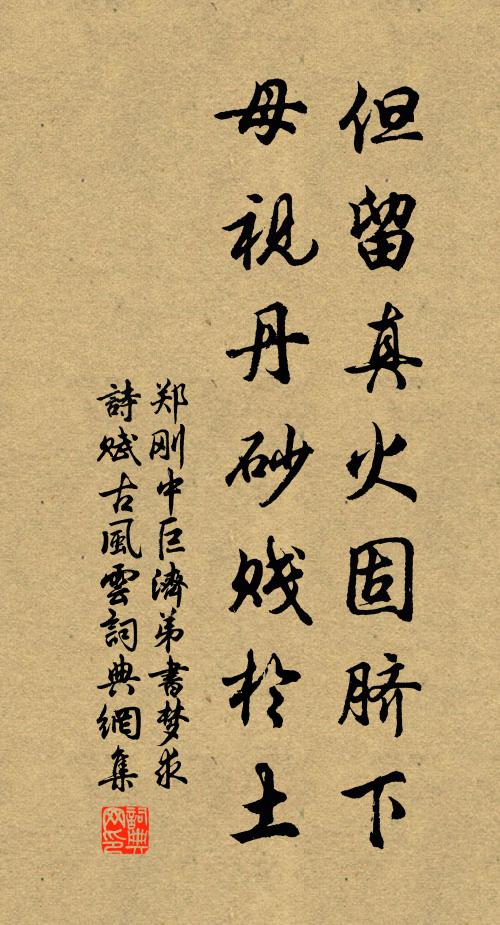 但留真火固脐下
母視丹砂贱於土
郑刚中巨濟弟書梦求
詩赋古風雲詞典網集
詞典网印